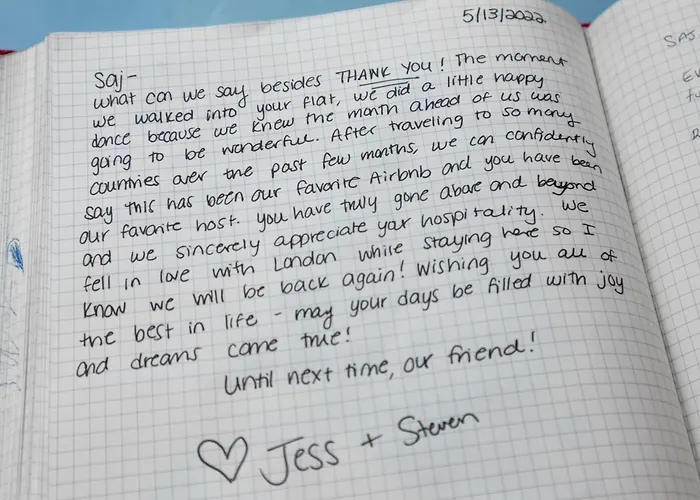 5/13/2022
Saj-
what can we say besides THANK YOU! The moment
we walked into your flat, we did a little happy
dance because we knew the month ahead of us was
going to be wonderful. After traveling to so many
countries over the past few months, we can confidently
say this has been our favorite Airbnb and you have been
our favorite host. you have truly gone above and beyond
and we sincerely appreciate your hospitality. We
fell in love with London while staying here so I
know we will be back again! Wishing you all of
the best in life - may your days be filled with joy
and dreams come true!
Until next time, our friend!
♡ Jess + Steven
SAJ